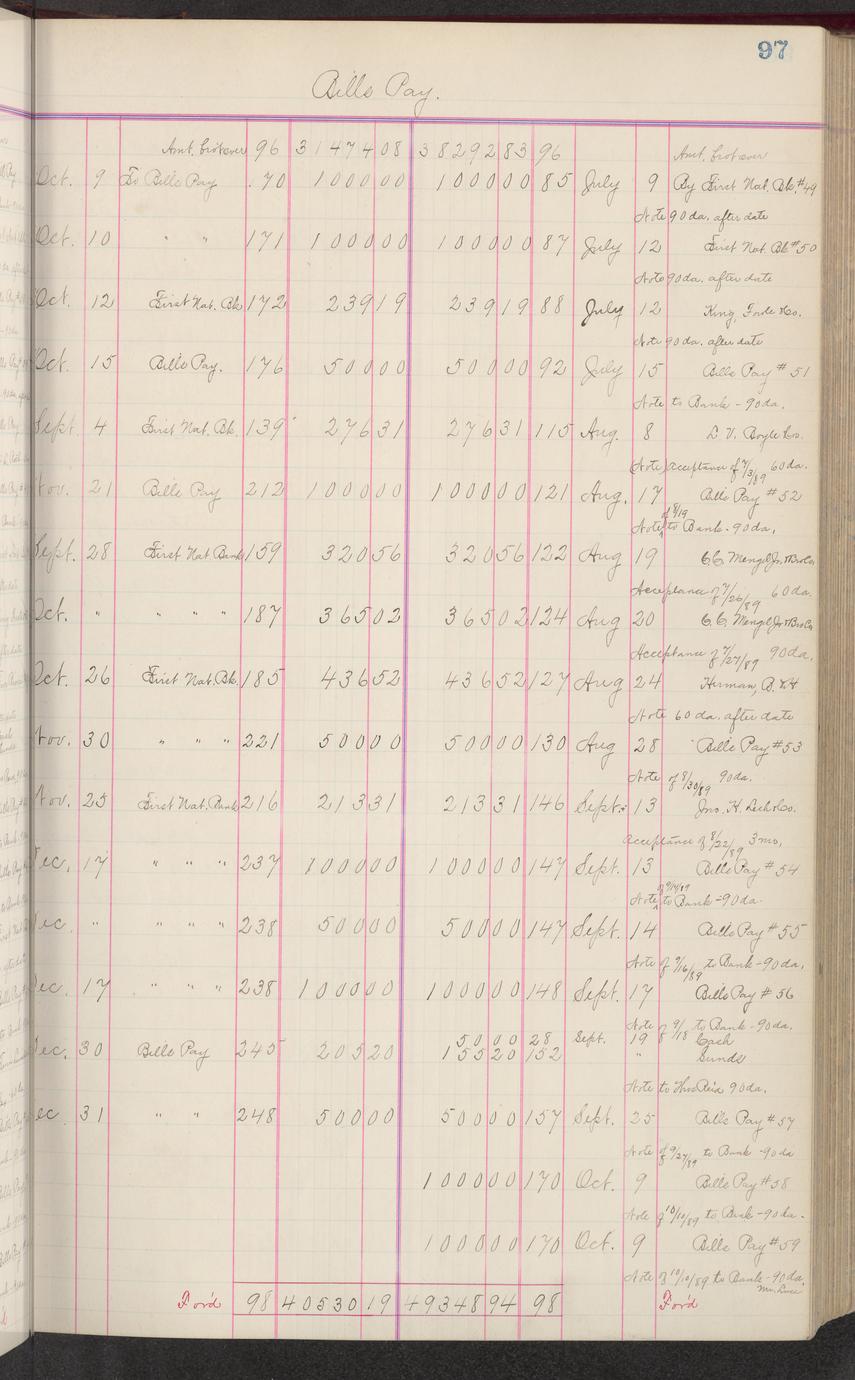 97
Bills Pay.
Amt. brot over 96 3147408 3829283 96 Amt. brot over
Oct. 9 To Bills Pay 170 100000 100000 85 July 9 By First Nat. Bk. #49
Note 90 da. after date
Oct. 10 " " 171 100000 100000 87 July 12 First Nat. Bk #50
Note 90 da. after date
Oct. 12 First Nat. Bk 172 23919 23919 88 July 12 King, Forde & Co.
Note 90 da. after date
Oct. 15 Bills Pay. 176 50000 50000 92 July 15 Bills Pay #51
Note to Bank - 90 da.
Sept. 4 First Nat. Bk. 139 27631 27631 115 Aug. 8 L. V. Boyle & Co.
Note, acceptance of 7/3/89 60 da.
Nov. 21 Bills Pay 212 100000 100000 121 Aug. 17 Bills Pay #52
Note of 8/19 to Bank - 90 da.
Sept. 28 First Nat Bank 159 32056 32056 122 Aug 19 C.C. Mengel Jr. & Bro Co
Acceptance of 7/26/89 60 da.
Oct. " " " " 187 36502 36502 124 Aug 20 C.C. Mengel Jr & Bro Co
Acceptance of 7/27/89 90 da.
Oct. 26 First Nat. Bk. 185 43652 43652 127 Aug 24 Herman, B. & H
Note 60 da. after date
Nov. 30 " " " 221 50000 50000 130 Aug 28 Bills Pay #53
Note of 8/30/89 90 da.
Nov. 25 First Nat. Bank 216 21331 21331 146 Sept. 13 Jno. H. & Co.
Acceptance of 8/22/89 3 mo,
Dec. 17 " " " 237 100000 100000 147 Sept. 13 Bills Pay #54
Note of 9/14/89 to Bank - 90 da.
Dec. " " " " 238 50000 50000 147 Sept. 14 Bills Pay #55
Note of 9/16/89 to Bank - 90 da,
Dec. 17 " " " 238 100000 100000 148 Sept. 17 Bills Pay #56
Note of 9/18 to Bank - 90 da.
5000 28 Sept. 19 Cash
Dec. 30 Bills Pay 245 20520 15520 152 " Sunds
Note to 90 da.
Dec. 31 " " 248 50000 50000 157 Sept. 25 Bills Pay #57
Note of 9/27/89 to Bank - 90 da
100000 170 Oct. 9 Bills Pay #58
Note of 10/10/89 to Bank - 90 da.
100000 170 Oct. 9 Bills Pay #59
Note of 10/10/89 to Bank - 90 da.
For'd 98 4053019 4934894 98 For'd